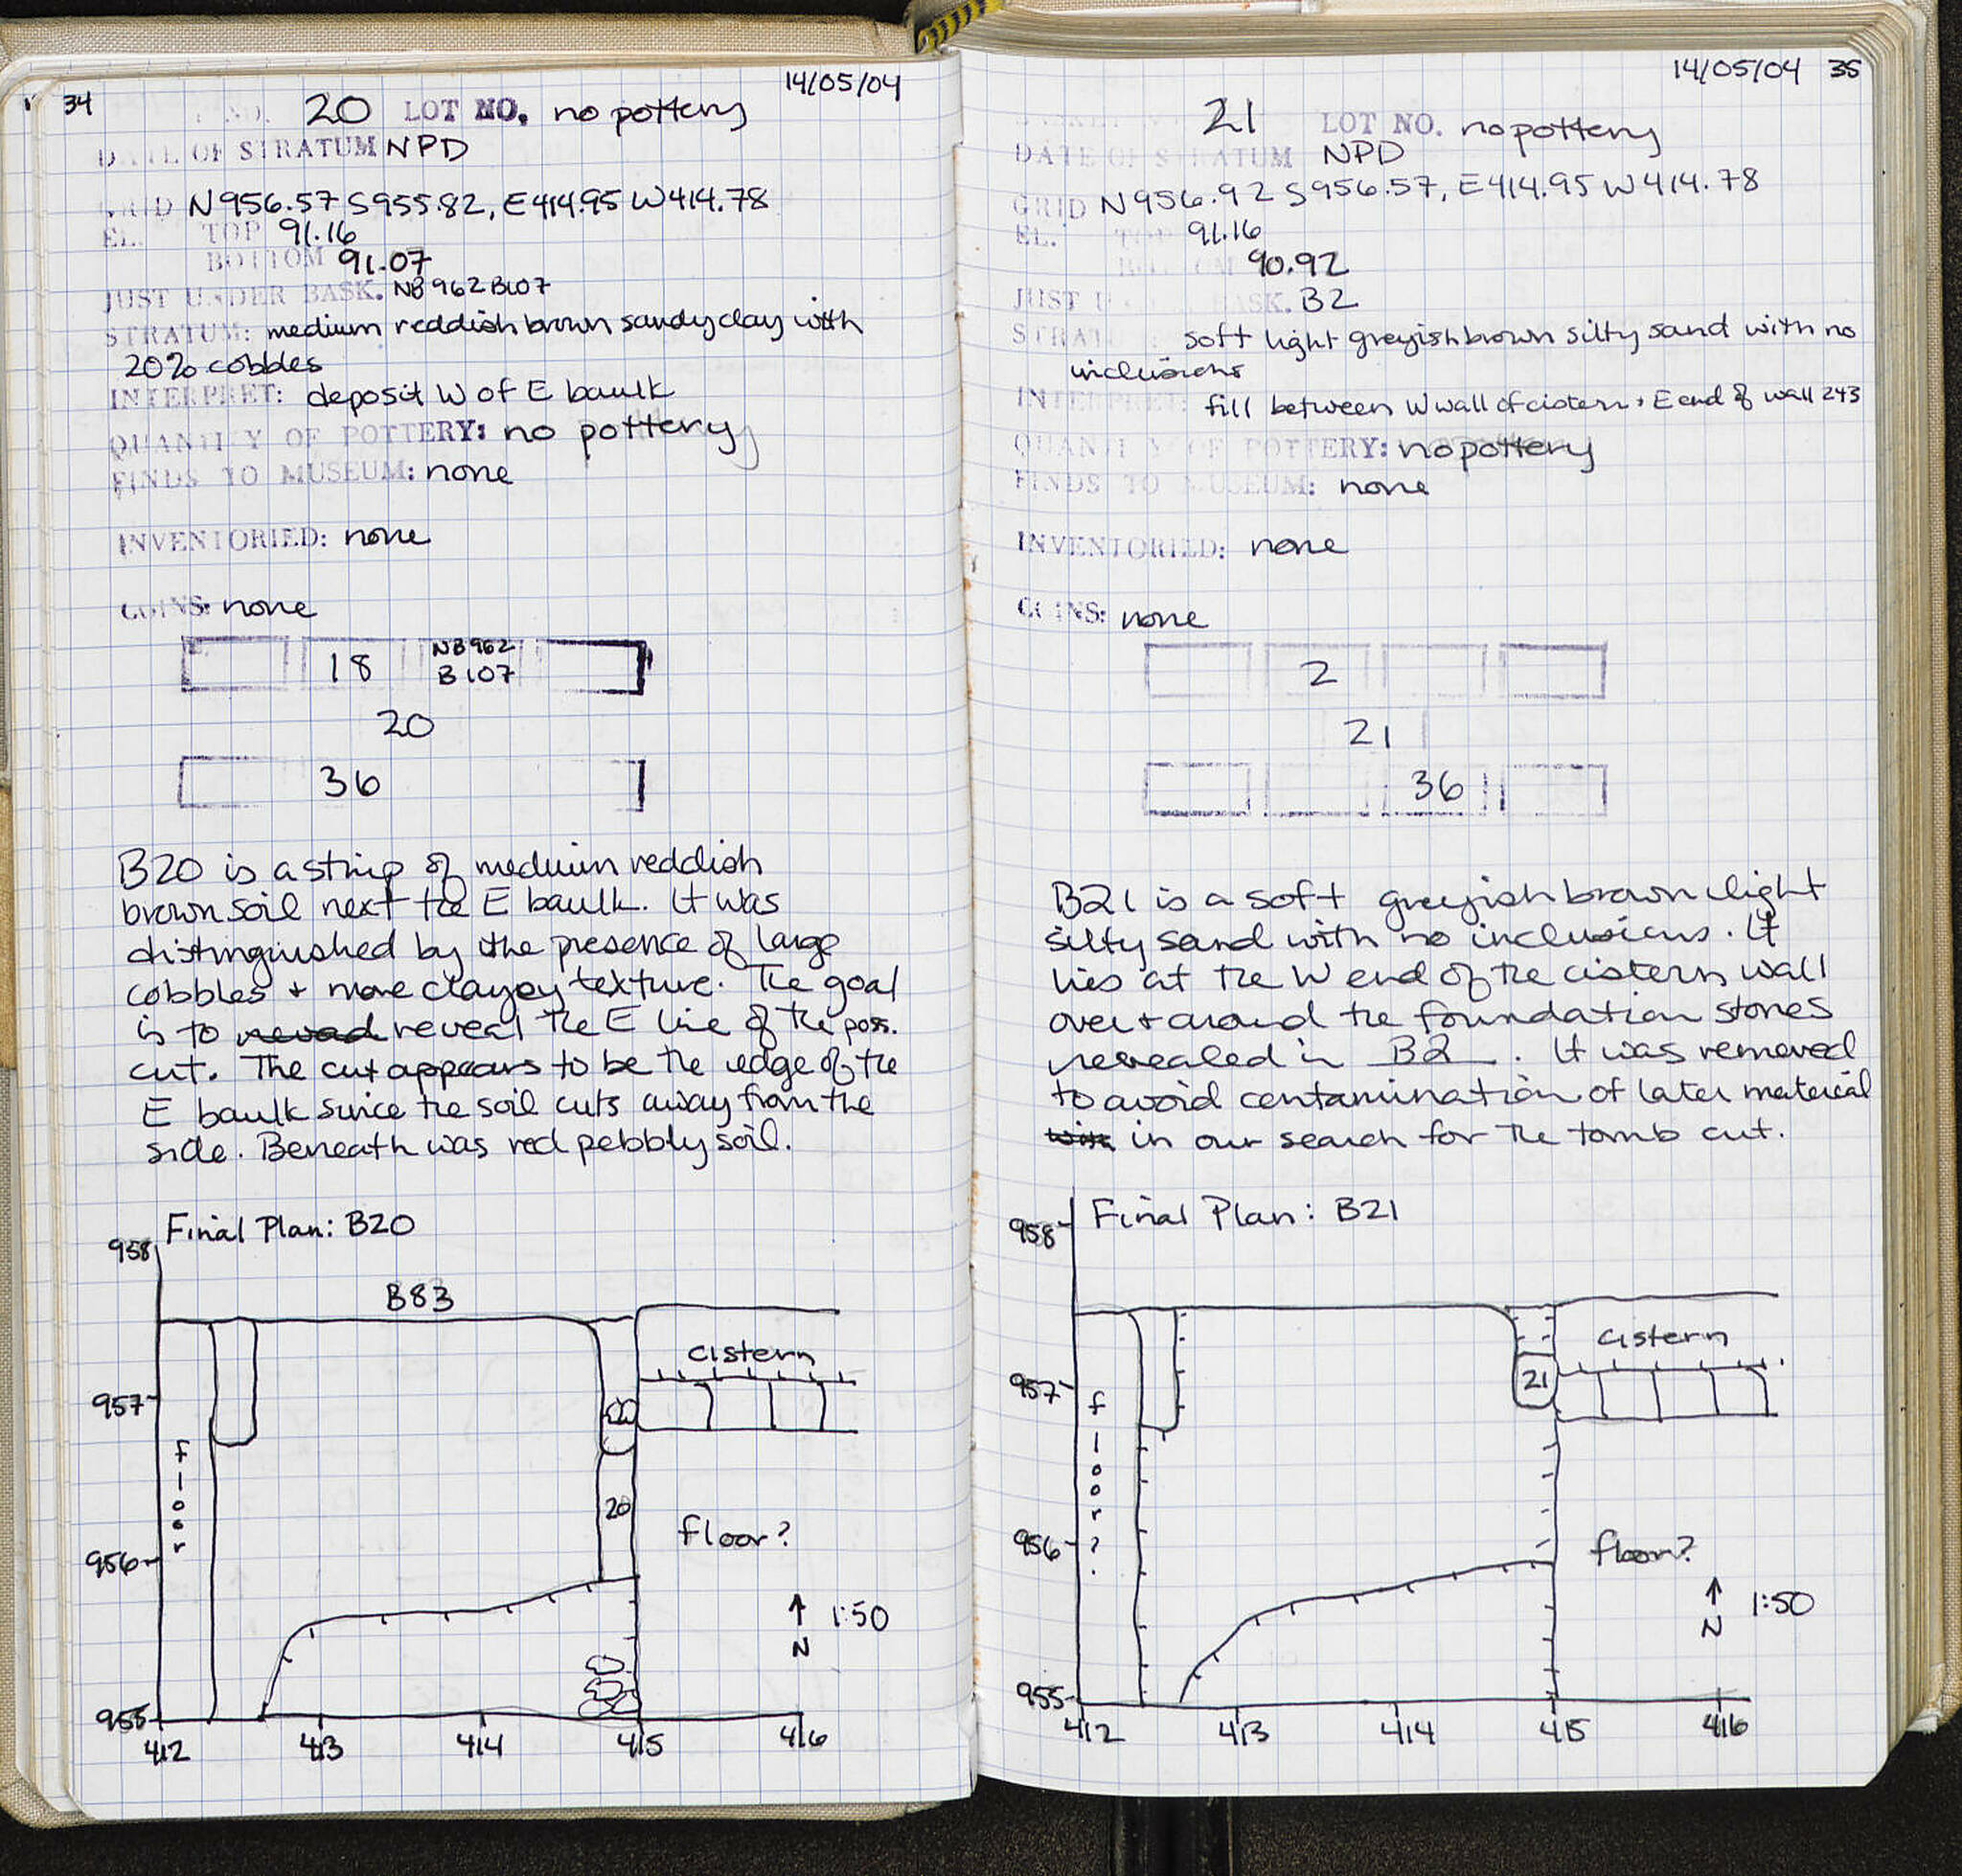 34
14/05/04
NO. 20 LOT NO. no pottery
DATE OF STRATUM NPD
GRID N956.57 S955.82, E414.95 W414.78
EL. TOP 91.16
BOTTOM 91.07
JUST UNDER BASK. NB962 B107
STRATUM: medium reddish brown sandy clay with
20% cobbles
INTERPRET: deposit W of E baulk
QUANTITY OF POTTERY: no pottery
FINDS TO MUSEUM: none
INVENTORIED: none
COINS: none
18 NB962 B107
20
36
B20 is a strip of medium reddish
brown soil next to the E baulk. It was
distinguished by the presence of large
cobbles + more clayey texture. The goal
is to reveal the E line of the poss.
cut. The cut appears to be the edge of the
E baulk since the soil cuts away from the
side. Beneath was red pebbly soil.
Final Plan: B20
958
B83
cistern
957
floor
20
floor?
956
1:50
N
955
412 413 414 415 416
14/05/04 35
21 LOT NO. no pottery
DATE OF STRATUM NPD
GRID N956.92 S956.57, E414.95 W414.78
EL. TOP 91.16
BOTTOM 90.92
JUST UNDER BASK. B2
STRATUM: soft light greyish brown silty sand with no
inclusions
INTERPRET: fill between W wall of cistern + E end of wall 243
QUANTITY OF POTTERY: no pottery
FINDS TO MUSEUM: none
INVENTORIED: none
COINS: none
2
21
36
B21 is a soft greyish brown light
silty sand with no inclusions. It
lies at the W end of the cistern wall
over + around the foundation stones
revealed in B2. It was removed
to avoid contamination of later material
in our search for the tomb cut.
Final Plan: B21
958
cistern
957
21
floor?
956
floor?
1:50
N
955
412 413 414 415 416